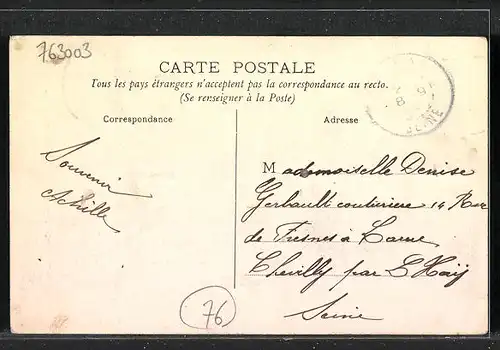 763003
CARTE POSTALE
Tous les pays étrangers n'acceptent pas la correspondance au recto.
(Se renseigner à la Poste)
Correspondance
Adresse
Souvenir
Achille
Mademoiselle Denise
Gerbault couturière 14 Rue
de Fresnes à Larue
Chevilly par L'Haÿ
Seine
76